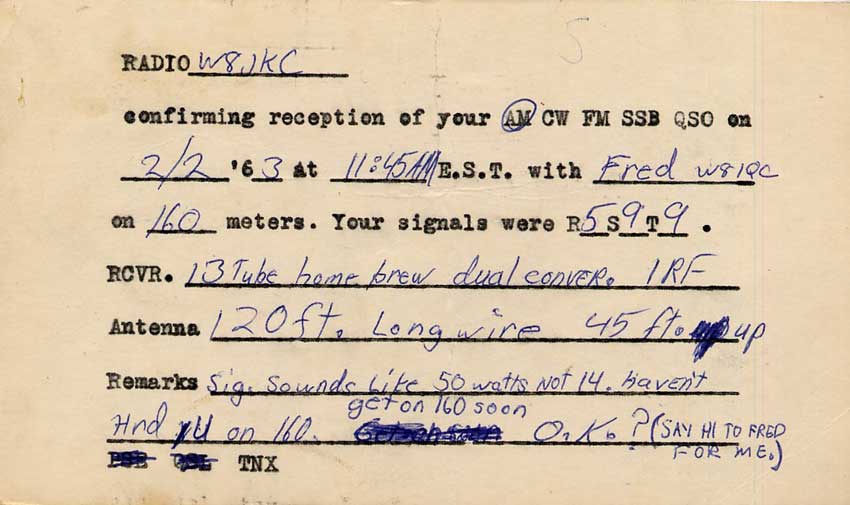 RADIO W8JKC
confirming reception of your AM CW FM SSB QSO on
2/2 '63 at 11:45AM E.S.T. with Fred W8IQC
on 160 meters. Your signals were R5S9T9.
RCVR. 13 Tube home brew dual conver. 1RF
Antenna 120ft. Long wire 45 ft. up
Remarks Sig. Sounds Like 50 watts not 14. haven't
get on 160 soon
Hrd U on 160. O.K.? (SAY HI TO FRED
FOR ME.)
PSE QSL TNX